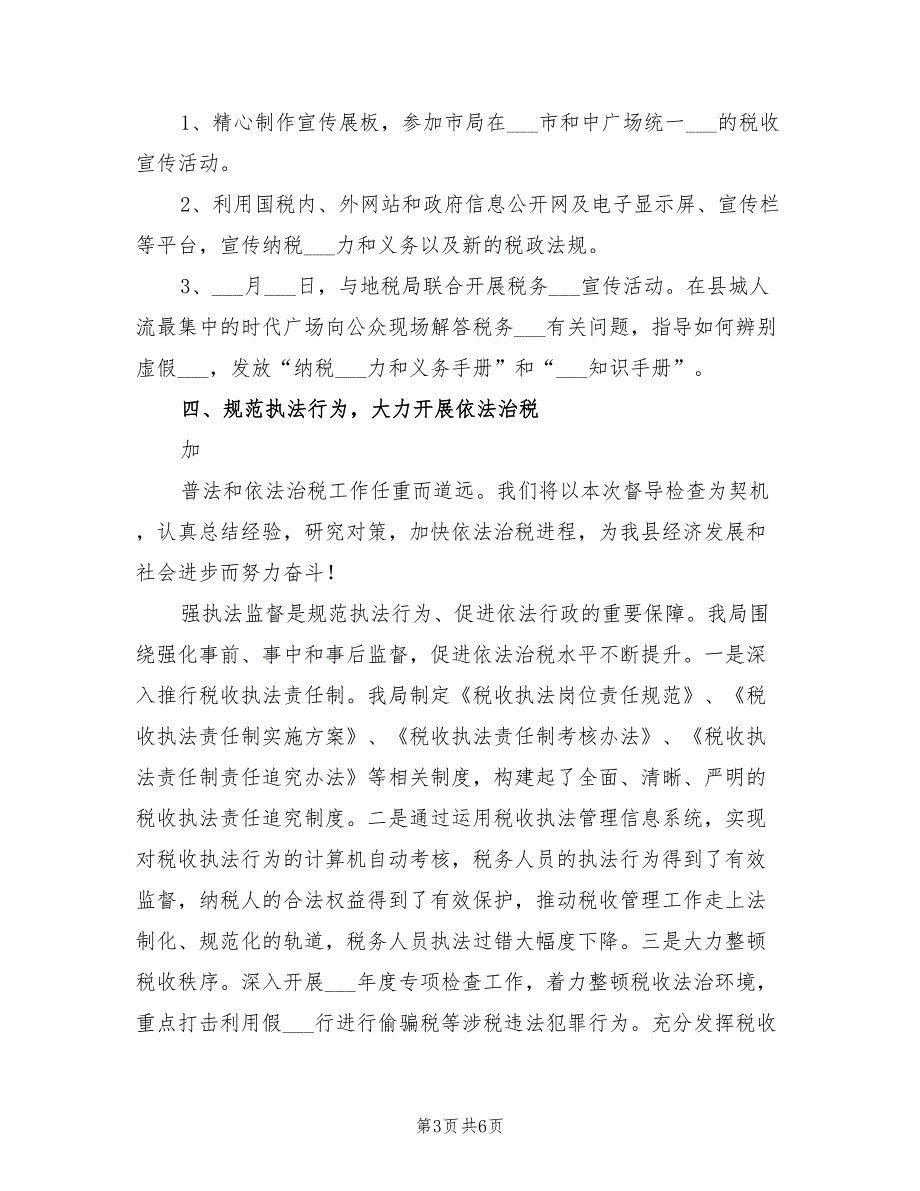 1、精心制作宣传展板，参加市局在___市和中广场统一___的税收
宣传活动。
2、利用国税内、外网站和政府信息公开网及电子显示屏、宣传栏
等平台，宣传纳税___力和义务以及新的税政法规。
3、___月___日，与地税局联合开展税务___宣传活动。在县城人
流最集中的时代广场向公众现场解答税务___有关问题，指导如何辨别
虚假___，发放“纳税___力和义务手册”和“___知识手册”。
四、规范执法行为，大力开展依法治税
加
普法和依法治税工作任重而道远。我们将以本次督导检查为契机
，认真总结经验，研究对策，加快依法治税进程，为我县经济发展和
社会进步而努力奋斗！
强执法监督是规范执法行为、促进依法行政的重要保障。我局围
绕强化事前、事中和事后监督，促进依法治税水平不断提升。一是深
入推行税收执法责任制。我局制定《税收执法岗位责任规范》、《税
收执法责任制实施方案》、《税收执法责任制考核办法》、《税收执
法责任制责任追究办法》等相关制度，构建起了全面、清晰、严明的
税收执法责任追究制度。二是通过运用税收执法管理信息系统，实现
对税收执法行为的计算机自动考核，税务人员的执法行为得到了有效
监督，纳税人的合法权益得到了有效保护，推动税收管理工作走上法
制化、规范化的轨道，税务人员执法过错大幅度下降。三是大力整顿
税收秩序。深入开展___年度专项检查工作，着力整顿税收法治环境，
重点打击利用假___行进行偷骗税等涉税违法犯罪行为。充分发挥税收
第3页共6页